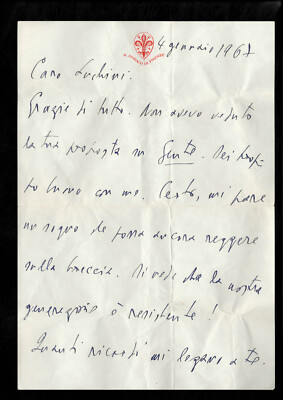 IL SINDACO DI FIRENZE
4 gennaio 1967
Caro Luchini,
Grazie di tutto. Non avevo veduto
la tua proposta su Gente. Sei trop-
po buono con me. Certo, mi pare
un sogno che possa ancora reggere
sulla breccia. Si vede che la nostra
generazione è resistente!
Quanti ricordi mi legano a te.